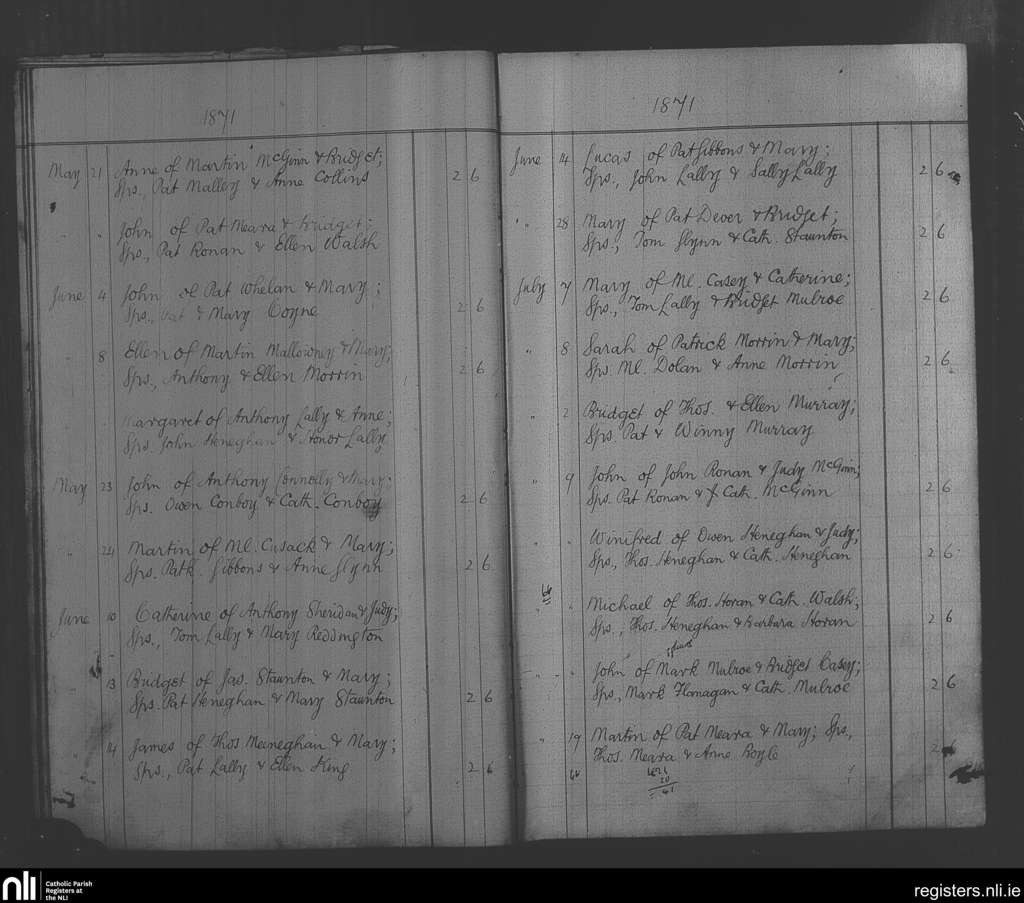 1871
May 21 Anne of Martin McGinn & Bridget;
Sps., Pat Malley & Anne Collins 2 6
" " John of Pat Meara & Bridget;
Sps., Pat Ronan & Ellen Walsh
June 4 John of Pat Whelan & Mary;
Sps., Pat & Mary Coyne 2 6
" 8 Ellen of Martin Mallowney & Mary;
Sps., Anthony & Ellen Morrin 2 6
Margaret of Anthony Lally & Anne;
Sps. John Heneghan & Honor Lally
May 23 John of Anthony Connolly & Mary;
Sps. Owen Conboy & Cath. Conboy 2 6
" 24 Martin of Ml. Cusack & Mary;
Sps. Patk. Gibbons & Anne Glynn 2 6
June 10 Catherine of Anthony Sheridan & Judy;
Sps., Tom Lally & Mary Reddington
13 Bridget of Jas. Staunton & Mary;
Sps. Pat Heneghan & Mary Staunton 2 6
" 14 James of Thos Meeneghan & Mary;
Sps., Pat Lally & Ellen King 2 6
1871
June 14 Lucas of Pat Gibbons & Mary;
Sps., John Lally & Sally Lally 2 6
" 28 Mary of Pat Dever & Bridget;
Sps., Tom Glynn & Cath. Staunton 2 6
July 7 Mary of Ml. Casey & Catherine;
Sps., Tom Lally & Bridget Mulroe 2 6
" 8 Sarah of Patrick Morrin & Mary;
Sps. Ml. Dolan & Anne Morrin 2 6
" 2 Bridget of Thos. & Ellen Murray;
Sps. Pat & Winny Murray
" 9 John of John Ronan & Judy McGinn;
Sps. Pat Ronan & Cath. McGinn 2 6
" " Winifred of Owen Heneghan & Judy;
Sps., Thos. Heneghan & Cath. Heneghan 2 6
" " Michael of Thos. Horan & Cath. Walsh;
Sps., Thos. Heneghan & Barbara Horan 2 6
" " John of Mark Mulroe & Bridget Casey;
Sps, Mark Flanagan & Cath. Mulroe 2 6
" 19 Martin of Pat Meara & Mary; Sps.,
Thos. Meara & Anne Boyle 2
20
41
nli
Catholic Parish
Registers at
the NLI
registers.nli.ie